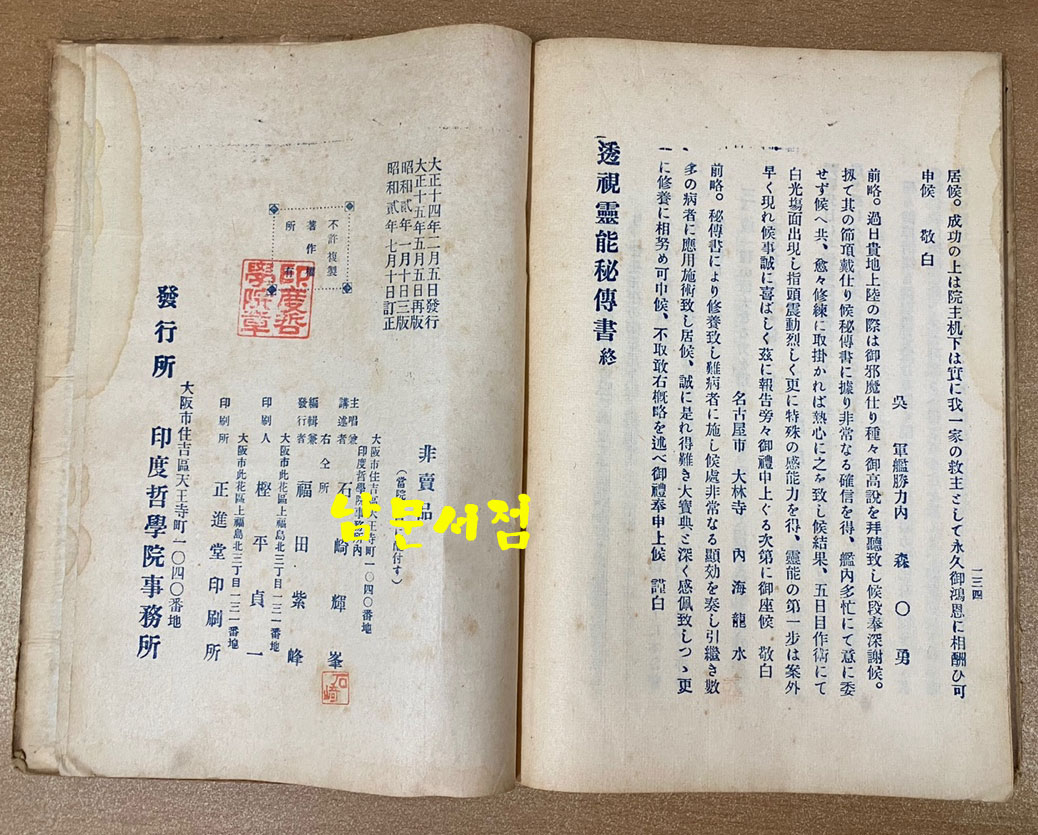 居候。成功の上は院主机下は實に我一家の救主として永久御鴻恩に相酬ひ可
申候 敬白
吳 軍艦勝力内 森〇勇
前略。過日貴地上陸の際は御邪魔仕り種々御高說を拜聽致し候段奉深謝候。
扨て其の節頂戴仕り候秘傳書に據り非常なる確信を得、艦内多忙にて意に委
せず候へ共、愈々修練に取掛かれば熱心に之を致し候結果、五日目作術にて
白光塲面出現し指頭震動烈しく更に特殊の感能力を得、靈能の第一步は案外
早く現れ候事誠に喜ばしく玆に報告旁々御禮申上ぐる次第に御座候 敬白
名古屋市 大林寺 内海龍水
前略。秘傳書により修養致し難病者に施し候處非常なる顯効を奏し引繼き數
多の病者に應用施術致し居候、誠に是れ得難き大寶典と深く感佩致しつゝ更
に修養に相努め可申候、不取敢右概略を述べ御禮奉申上候 謹白
透視靈能秘傳書 終
一三四
大正十四年二月五日發行
大正十五年五月五日再版
昭和貳年一月十日三版
昭和貳年七月十日訂正
不許複製
著作權
所有
印度哲
學院章
非賣品
大阪市住吉區天王寺町一〇四〇番地
印度哲學院事務所内
主唱兼
講述者 石崎輝峯
石崎
右仝所
編輯兼
發行者 福田紫峰
大阪市此花區上福島北三丁目一三一番地
印刷人 樫平貞一
大阪市此花區上福島北三丁目一三一番地
印刷所 正進堂印刷所
大阪市住吉區天王寺町一〇四〇番地
發行所 印度哲學院事務所
남문서점